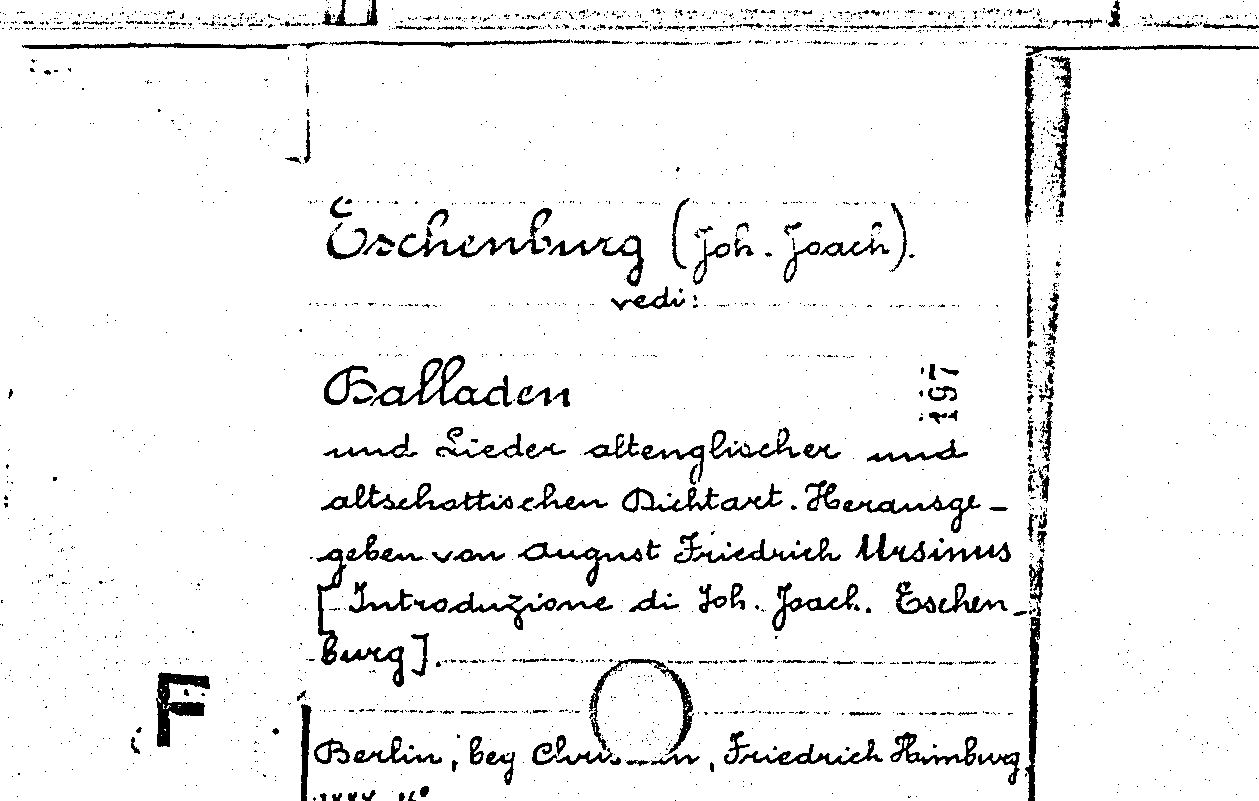 Eschenburg (Joh. Joach).
vedi:
197
Balladen
und Lieder altenglischer und
altschottischen Dichtart. Herausge-
geben von August Friedrich Ursinus
[Introduzione di Joh. Joach. Eschen-
burg].
F
Berlin, bey , Friedrich Himburg